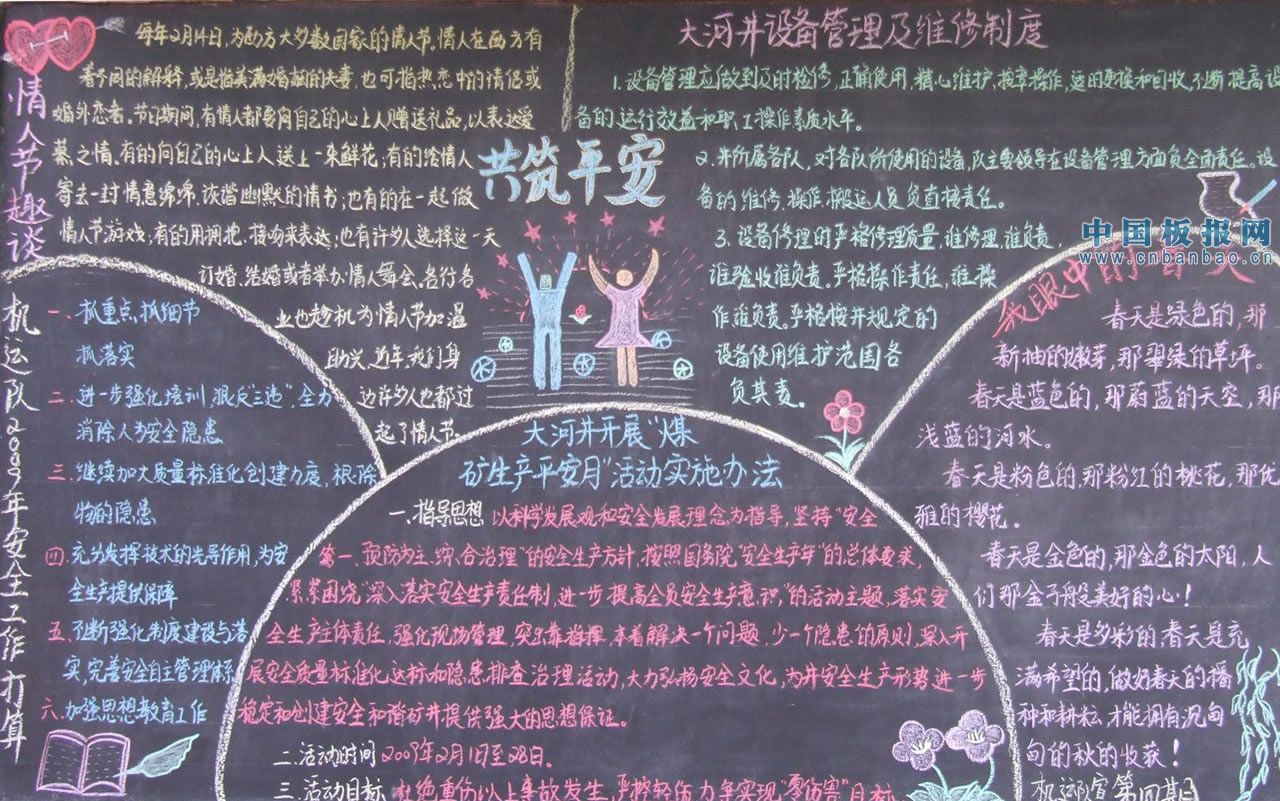 情人节趣谈
每年2月14日,为西方大多数国家的情人节。情人在西方有
着不同的解释,或是指美满婚姻的夫妻,也可指热恋中的情侣或
婚外恋者。节日期间,有情人都要向自己的心上人赠送礼品,以表达爱
慕之情。有的向自己的心上人送上一束鲜花;有的给情人
寄去一封情意绵绵,诙谐幽默的情书;也有的在一起做
情人节游戏;有的用拥抱、接吻来表达;也有许多人选择这一天
订婚、结婚或者举办情人舞会。各行各
业也趁机为情人节加温
助兴,近年,我们身
边许多人也都过
起了情人节。
共筑平安
大河井设备管理及维修制度
1.设备管理应做到及时检修,正确使用,精心维护,按章操作,适时更换和回收,不断提高设
备的运行效益和职工操作素质水平。
2.井所属各队,对各队所使用的设备,队主要领导在设备管理方面负全面责任。设
备的维修、操作、搬运人员负直接责任。
3.设备修理时严格修理质量,谁修理,谁负责,
谁验收谁负责。严格操作责任,谁操
作谁负责。严格按井规定的
设备使用维护范围各
负其责。
中国板报网
www.cnbanbao.cn
机运队2009年安全工作打算
一、抓重点,抓细节
抓落实
二、进一步强化培训,狠反"三违",全力
消除人为安全隐患
三、继续加大质量标准化创建力度,根除
物的隐患
四、充分发挥技术的先导作用,为安
全生产提供保障
五、不断强化制度建设与落
实,完善安全自主管理体系
六、加强思想教育工作
大河井开展"煤
矿生产平安月"活动实施办法
一、指导思想 以科学发展观和安全发展理念为指导,坚持"安全
第一、预防为主、综合治理"的安全生产方针,按照国务院"安全生产年"的总体要求,
紧紧围绕"深入落实安全生产责任制,进一步提高全员安全生产意识,"的活动主题,落实安
全生产主体责任,强化现场管理,突出靠指挥,本着解决一个问题,少一个隐患的原则,深入开
展安全质量标准化达标和隐患排查治理活动,大力弘扬安全文化,为井安全生产形势进一步
稳定和创建安全和谐矿井提供强大的思想保证。
二、活动时间 2009年2月1日至28日。
三、活动目标 杜绝重伤以上事故发生,严控轻伤,力争实现"零伤害"目标
我眼中的春天
春天是绿色的,那
新抽的嫩芽,那翠绿的草坪。
春天是蓝色的,那蔚蓝的天空,那
浅蓝的河水。
春天是粉色的,那粉红的桃花,那优
雅的樱花。
春天是金色的,那金色的太阳,人
们那金子般美好的心!
春天是多彩的,春天是充
满希望的,做好春天的播
种和耕耘,才能拥有沉甸
甸的秋的收获!
机运队宣 第四期